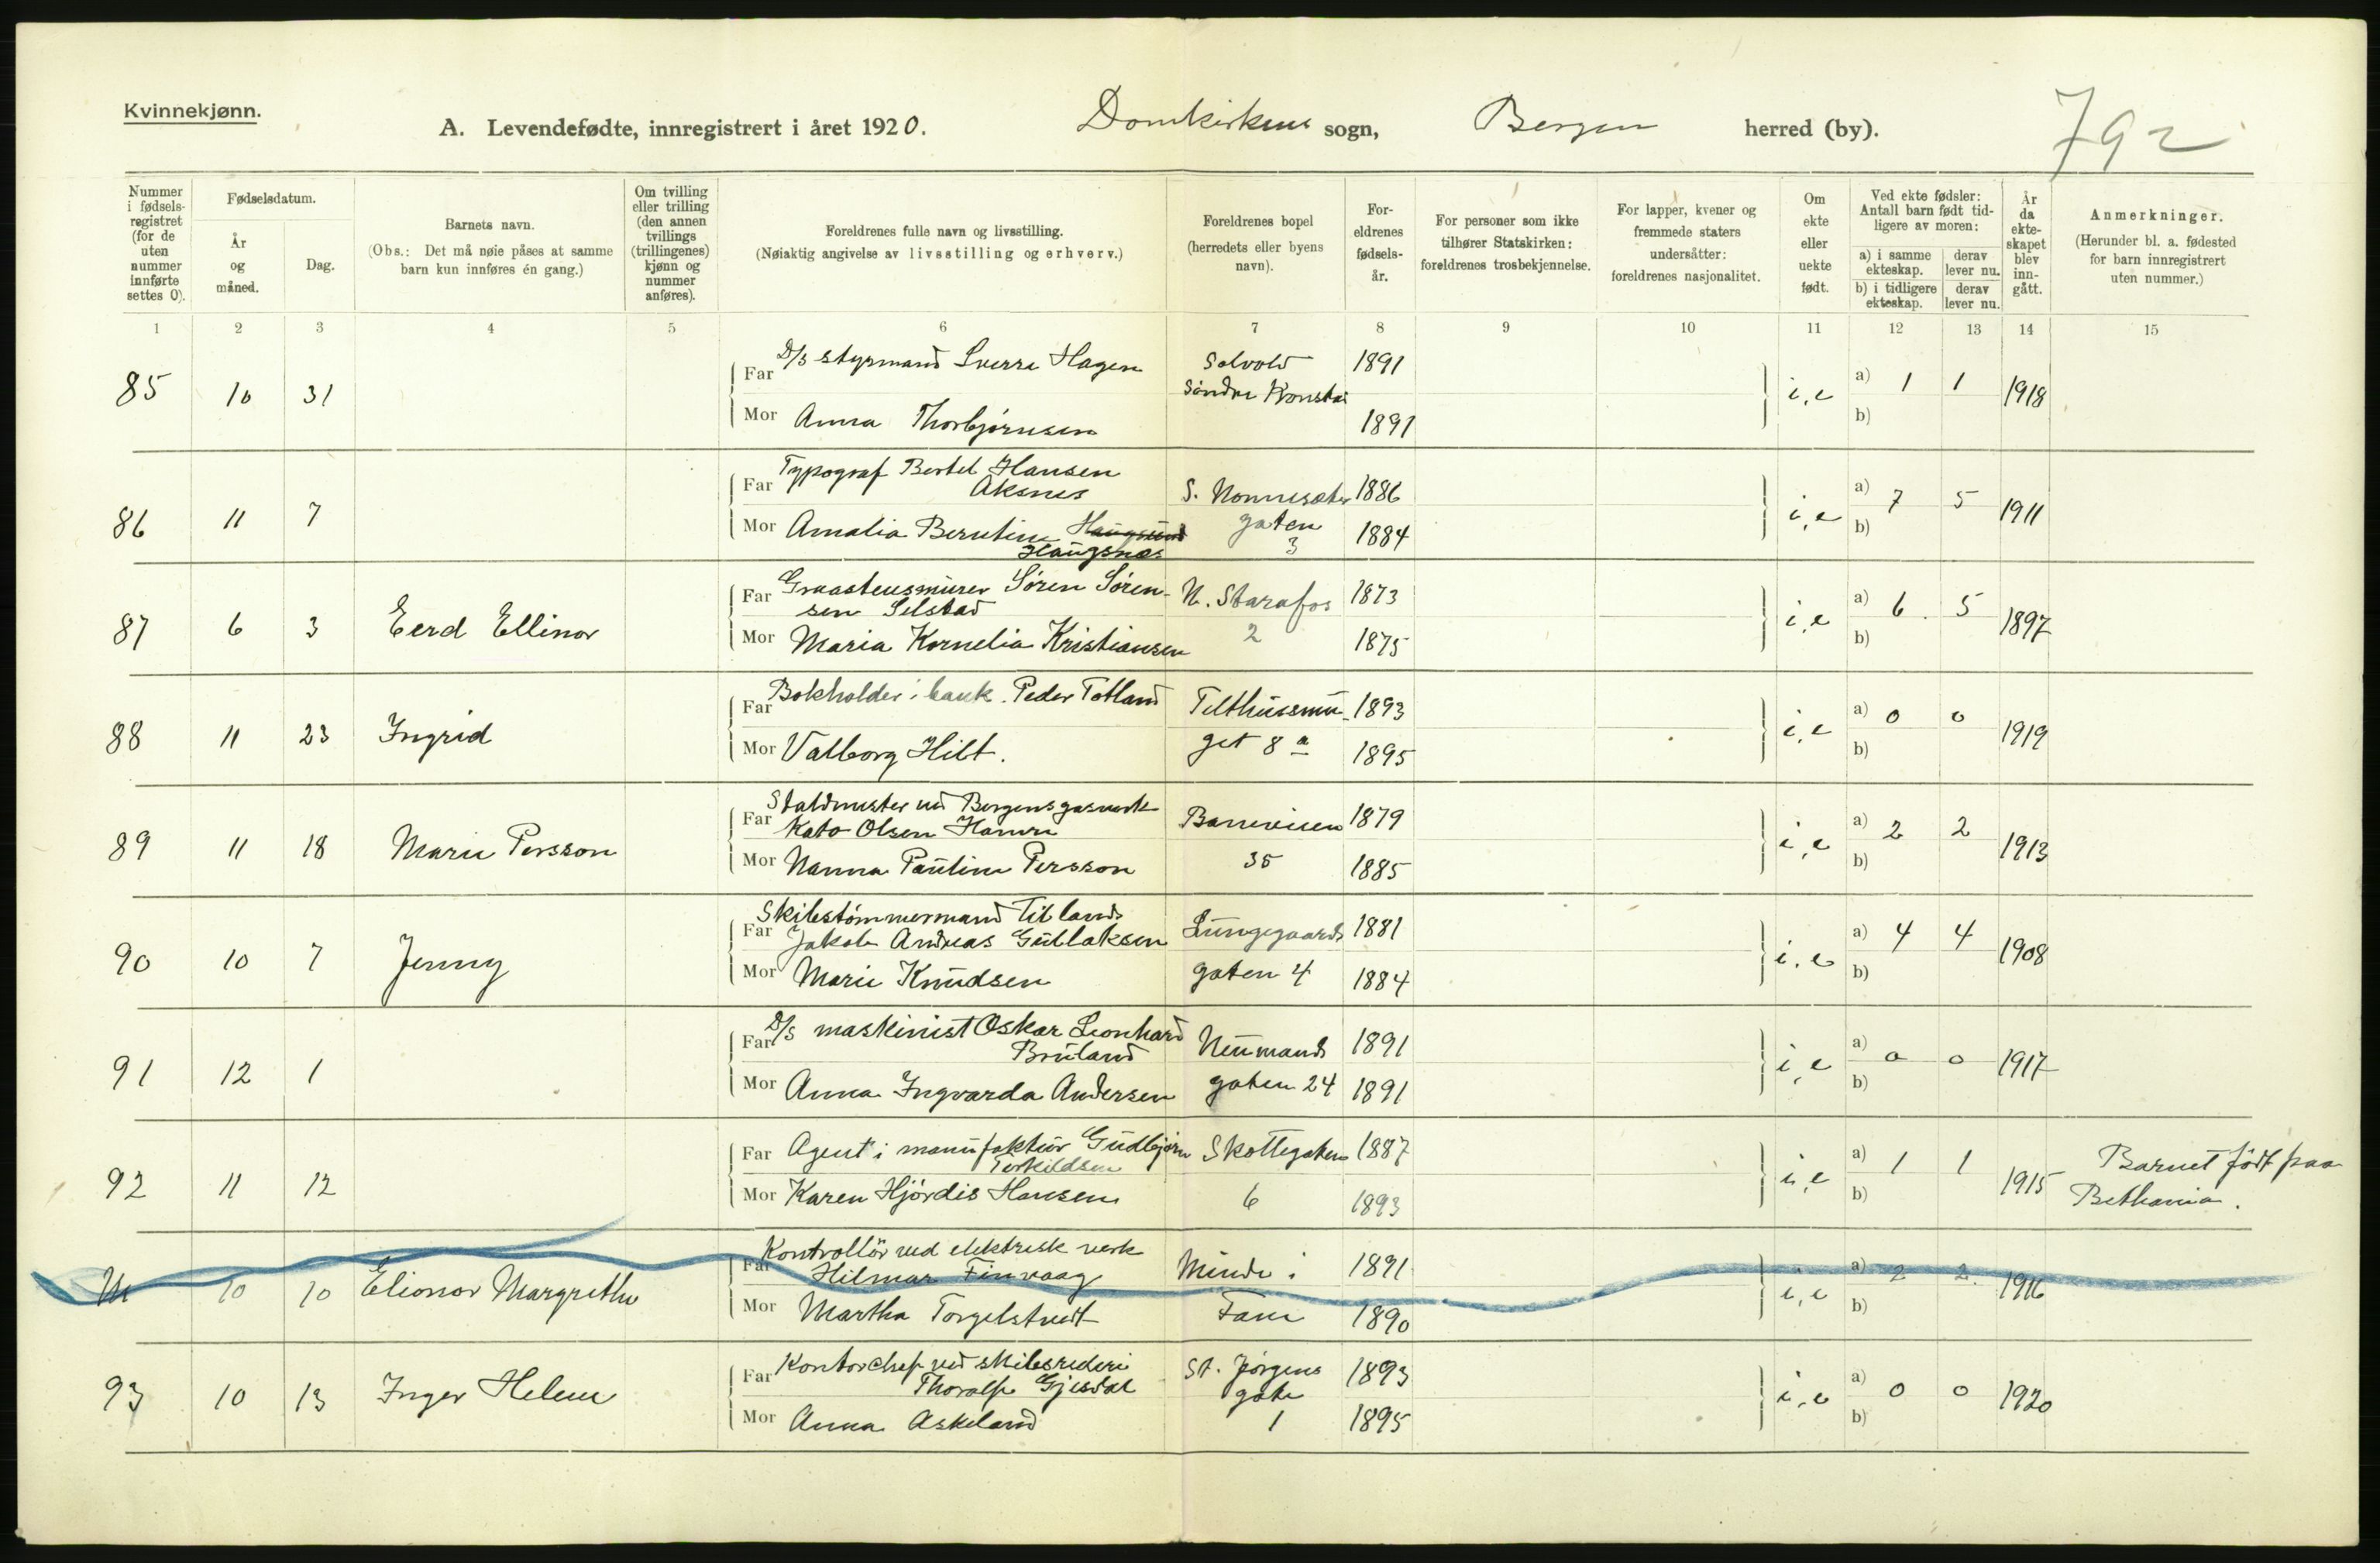 Kvinnekjønn.
A. Levendefødte, innregistrert i året 1920. Domkirkens sogn, Bergen herred (by). 792
Nummer i fødselsregistret (for de uten nummer innførte settes 0).
Fødselsdatum.
År og måned.
Dag.
Barnets navn.
(Obs.: Det må nøie påses at samme barn kun innføres én gang.)
Om tvilling eller trilling (den annen tvillings (trillingenes) kjønn og nummer anføres).
Foreldrenes fulle navn og livsstilling.
(Nøiaktig angivelse av livsstilling og erhverv.)
Foreldrenes bopel (herredets eller byens navn).
Foreldrenes fødselsår.
For personer som ikke tilhører Statskirken: foreldrenes trosbekjennelse.
For lapper, kvener og fremmede staters undersåtter: foreldrenes nasjonalitet.
Om ekte eller uekte født.
Ved ekte fødsler: Antall barn født tidligere av moren:
a) i samme ekteskap. derav lever nu.
b) i tidligere ekteskap. derav lever nu.
År da ekteskapet blev inngått.
Anmerkninger.
(Herunder bl. a. fødested for barn innregistrert uten nummer.)
1 2 3 4 5 6 7 8 9 10 11 12 13 14 15
85 10 31 Far D/s styrmand Sverre Hagen Solvold 1891 i, e a) 1 1 1918
Søndre Kronstad
Mor Anna Thorbjørnsen 1891 b)
86 11 7 Far Typograf Bertel Hansen Aksnes S. Nonneseter 1886 i, e a) 7 5 1911
Mor Amalia Berntine Haugsund Haugsnes gaten 3 1884 b)
87 6 3 Eerd Ellinor Far Graastensmurer Søren Sørensen Selstad N. Starefos 1873 i, e a) 6 5 1897
Mor Maria Kornelia Kristiansen 2 1875 b)
88 11 23 Ingrid Far Bokholder i bank. Peder Totland Telthussmu- 1893 i, e a) 0 0 1919
Mor Valborg Hilt. get 8 a 1895 b)
89 11 18 Marie Persson Far Staldmester ved Bergens gasverk Kato Olsen Hamre Baneveien 1879 i, e a) 2 2 1913
Mor Nanna Pauline Persson 35 1885 b)
90 10 7 Jenny Far Skibstømmermand Titland Jakob Andreas Gullaksen Lungegaards 1881 i, e a) 4 4 1908
Mor Marie Knudsen gaten 4 1884 b)
91 12 1 Far D/s maskinist Oskar Leonhard Bruland Neumands 1891 i, e a) 0 0 1917
Mor Anna Ingvarda Andersen gaten 24 1891 b)
92 11 12 Far Agent i manufaktur Gudbjørn Terkildsen Skottegaten 1887 i, e a) 1 1 1915 Barnet født paa
Mor Karen Hjørdis Hansen 6 1893 b) Bethania.
10 10 Elionor Margrethe Far Kontrollør ved elektrisk verk Hilmar Finvaag Minde i 1891 i, e a) 2 2 1916
Mor Martha Torgelstvedt Fane 1890 b)
93 10 13 Inger Helene Far Kontorchef ved skibsrederi Thoralf Gjesdal St. Jørgens 1893 i, e a) 0 0 1920
gate
Mor Anna Askeland 1 1895 b)